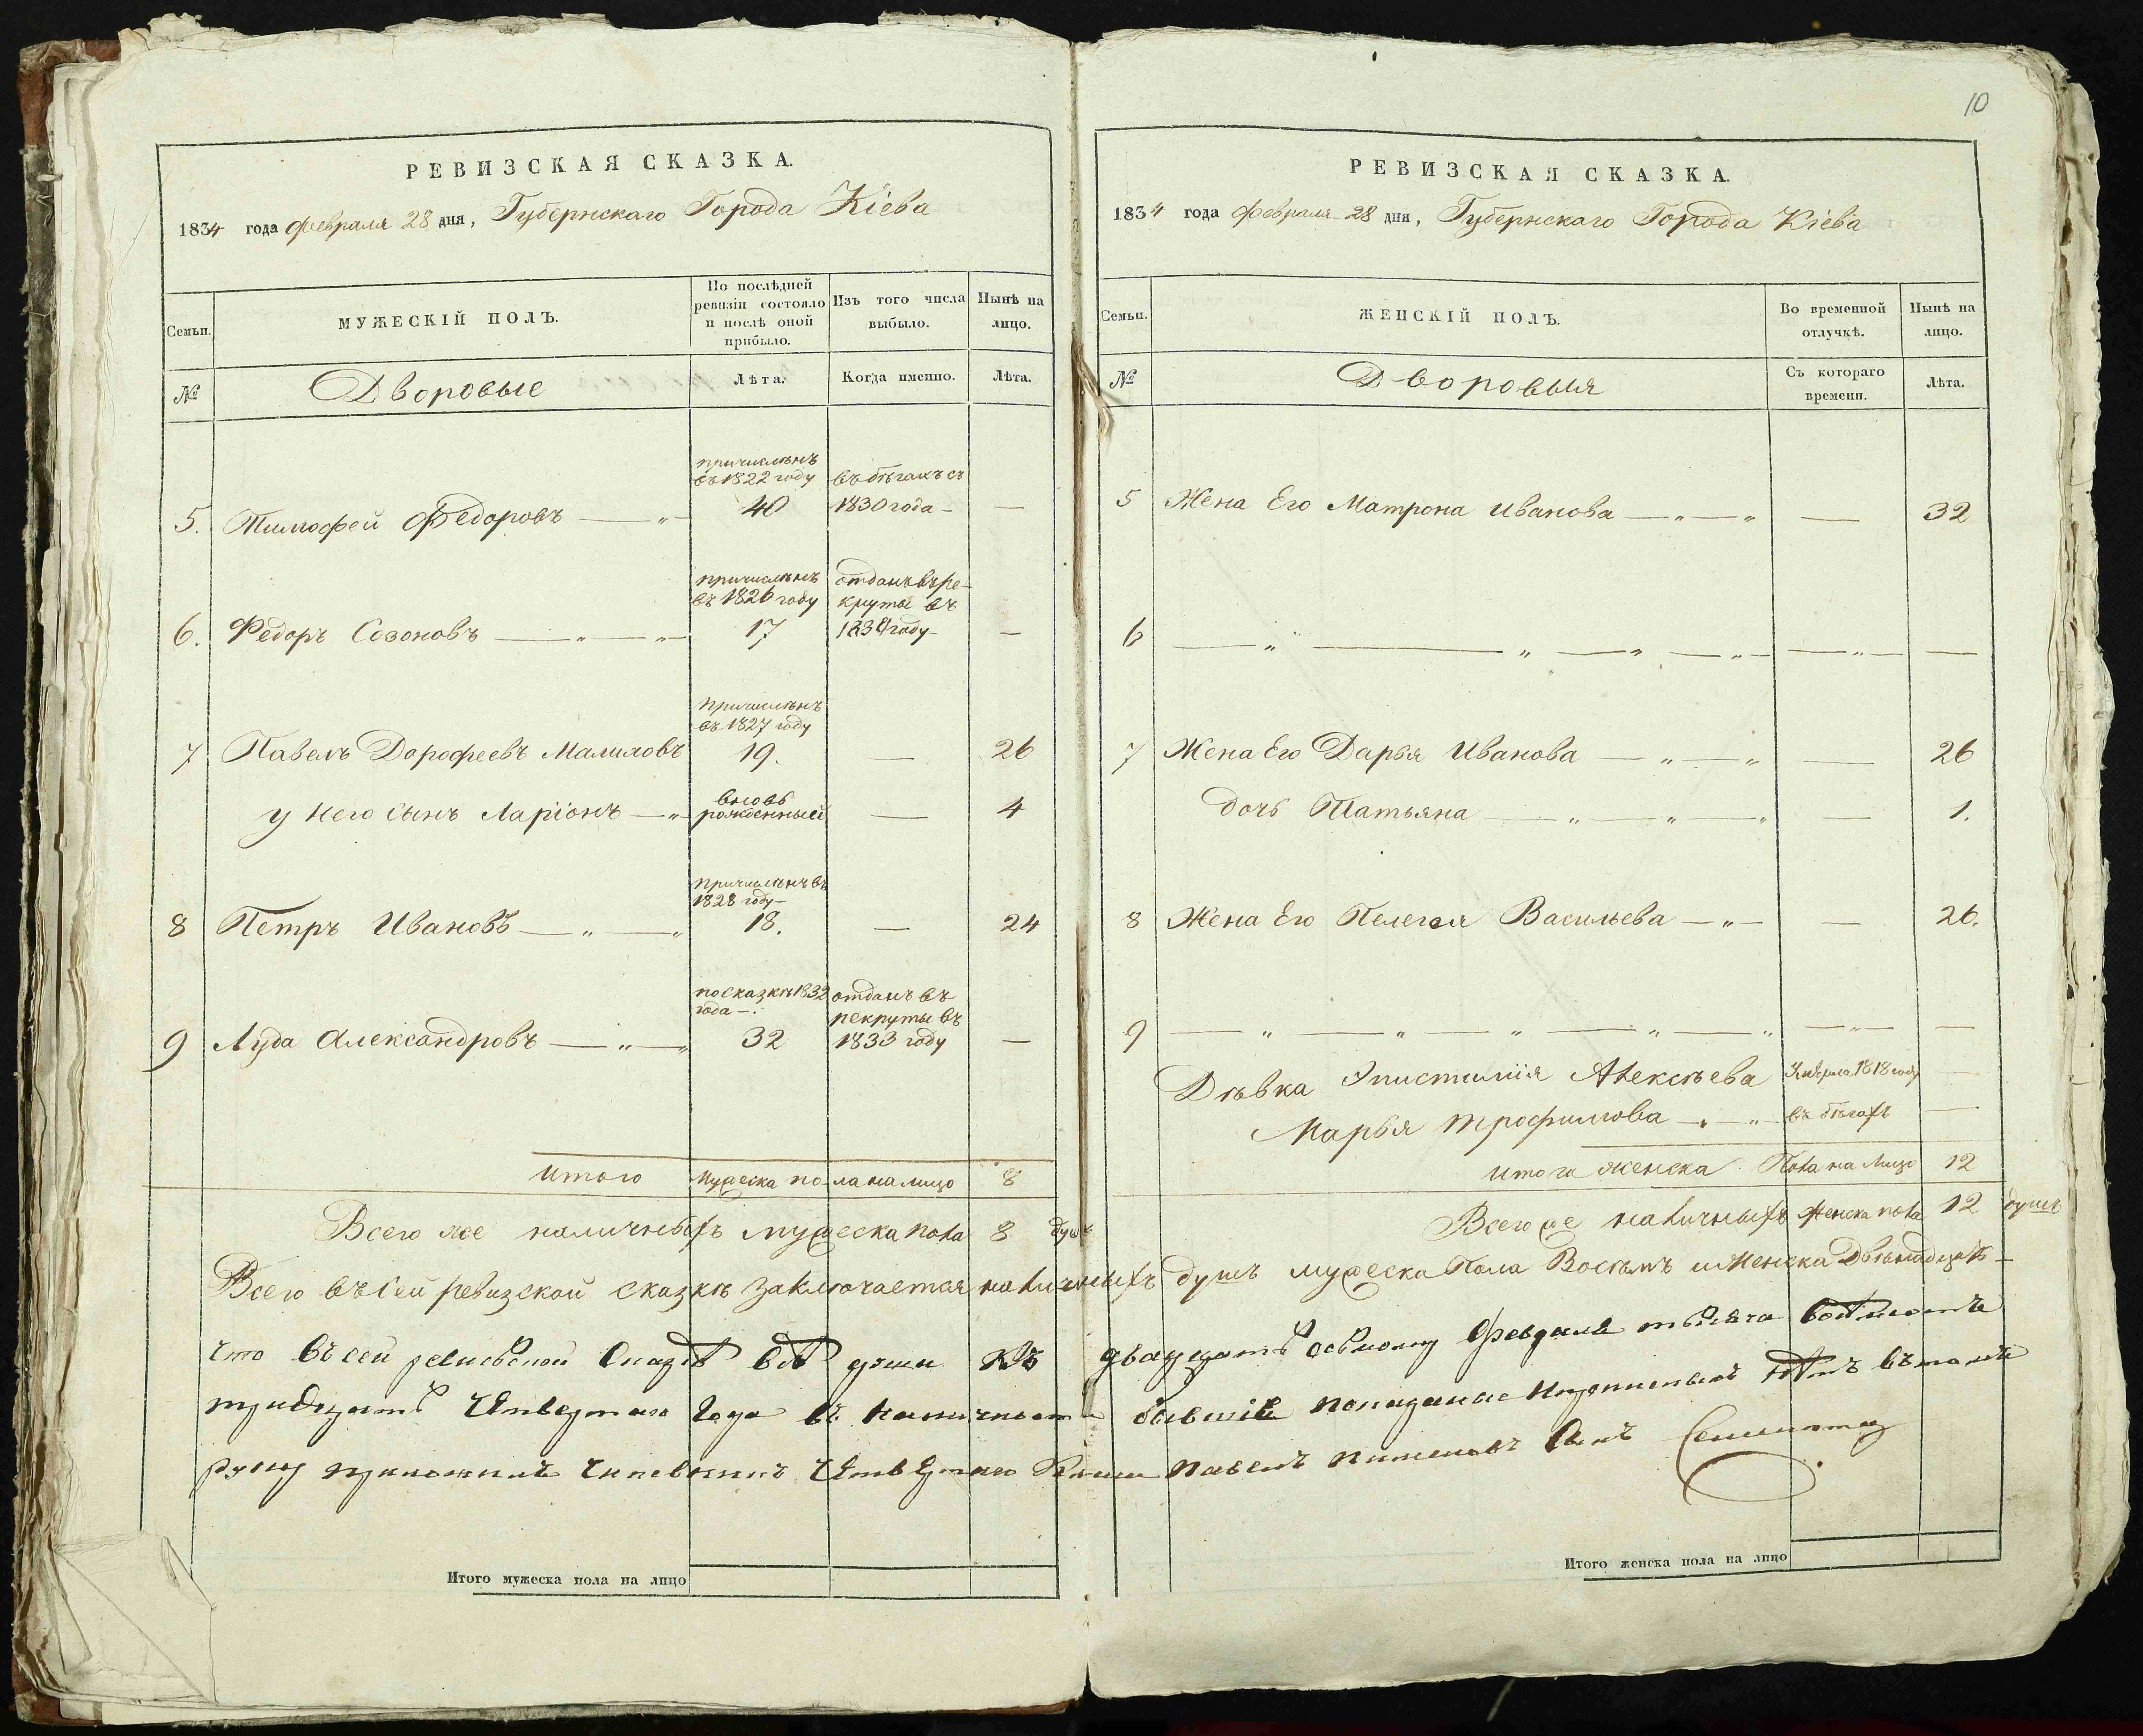 10
РЕВИЗСКАЯ СКАЗКА.
1834 года Февраля 28 дня, Губернскаго Города Кіева
Семьи.
МУЖЕСКІЙ ПОЛЪ.
По послѣдней
ревизіи состояло
и послѣ оной
прибыло.
Изъ того числа
выбыло.
Нынѣ на
лицо.
№
Дворовые
Лѣта.
Когда именно.
Лѣта.
причисленъ
въ 1822 году
въ бѣгахъ съ
5. Тимофей Федоровъ — „ 40 1830 года — —
причисленъ
въ 1826 году
отданъ въ ре-
круты въ
6. Федоръ Созоновъ — „ — „ 17 году — —
причисленъ
въ 1827 году
7 Павелъ Дорофеевъ 19. — 26
вновь
у него сынъ Ларіонъ — „ рожденный — 4
причисленъ въ
1828 году —
8 Петръ Ивановъ — „ — „ 18. — 24
по сказкѣ 1832
года —.
отданъ въ
рекруты въ
9 Александровъ — „ — „ 32 1833 году —
Итого мужеска пола на лицо 8
Всего же наличныхъ мужеска пола 8 душъ
Всего въ сей ревизской сказкѣ заключается наличныхъ душъ мужеска Пола Восемъ и Женска Двѣнадцать —
что въ сей Сказке все души къ двадцать осьмому Февраля тысяча
тридцать Четвертаго Года въ наличности
руку приложилъ Павелъ Сынъ
Итого мужеска пола на лицо
РЕВИЗСКАЯ СКАЗКА.
1834 года Февраля 28 дня, Губернскаго Города Кіева
Семьи.
ЖЕНСКІЙ ПОЛЪ.
Во временной
отлучкѣ.
Нынѣ на
лицо.
№
Дворовыя
Съ котораго
времени.
Лѣта.
5 Жена Его Матрона Иванова — „ — „ — 32
6 — „ — „ — „ — „ — — „ — —
7 Жена Его Дарья Иванова — „ — „ — 26
дочь Татьяна — „ — „ — „ — 1.
8 Жена Его Пелегея Васильева — „ — — 26.
9 — „ — „ — „ — „ — „ — „ — —
Дѣвка Эпистимія Алексѣева 1818 году —
Марья Трофимова — „ — „ въ бѣгахъ —
Итого женска Пола на Лицо 12
Всего же наличныхъ Женска пола 12 душъ
Итого женска пола на лицо